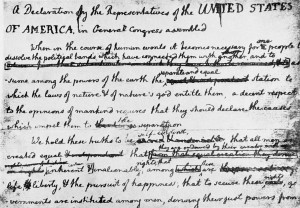 A Declaration by the Representatives of the UNITED STATES
OF AMERICA, in General Congress assembled
When in the course of human events it becomes necessary for one people to
dissolve the political bands which have connected them with another, and to as-
separate and equal
sume among the powers of the earth the station to
which the laws of nature & of nature's god entitle them, a decent respect
to the opinions of mankind requires that they should declare the causes
which impel them to the separation
self-evident
We hold these truths to be that all men are
they are endowed by their creator with
created equal that
rights; that
inherent & inalienable, among which are
life, & liberty, & the pursuit of happiness; that to secure these
vernments are instituted among men, deriving their just powers from